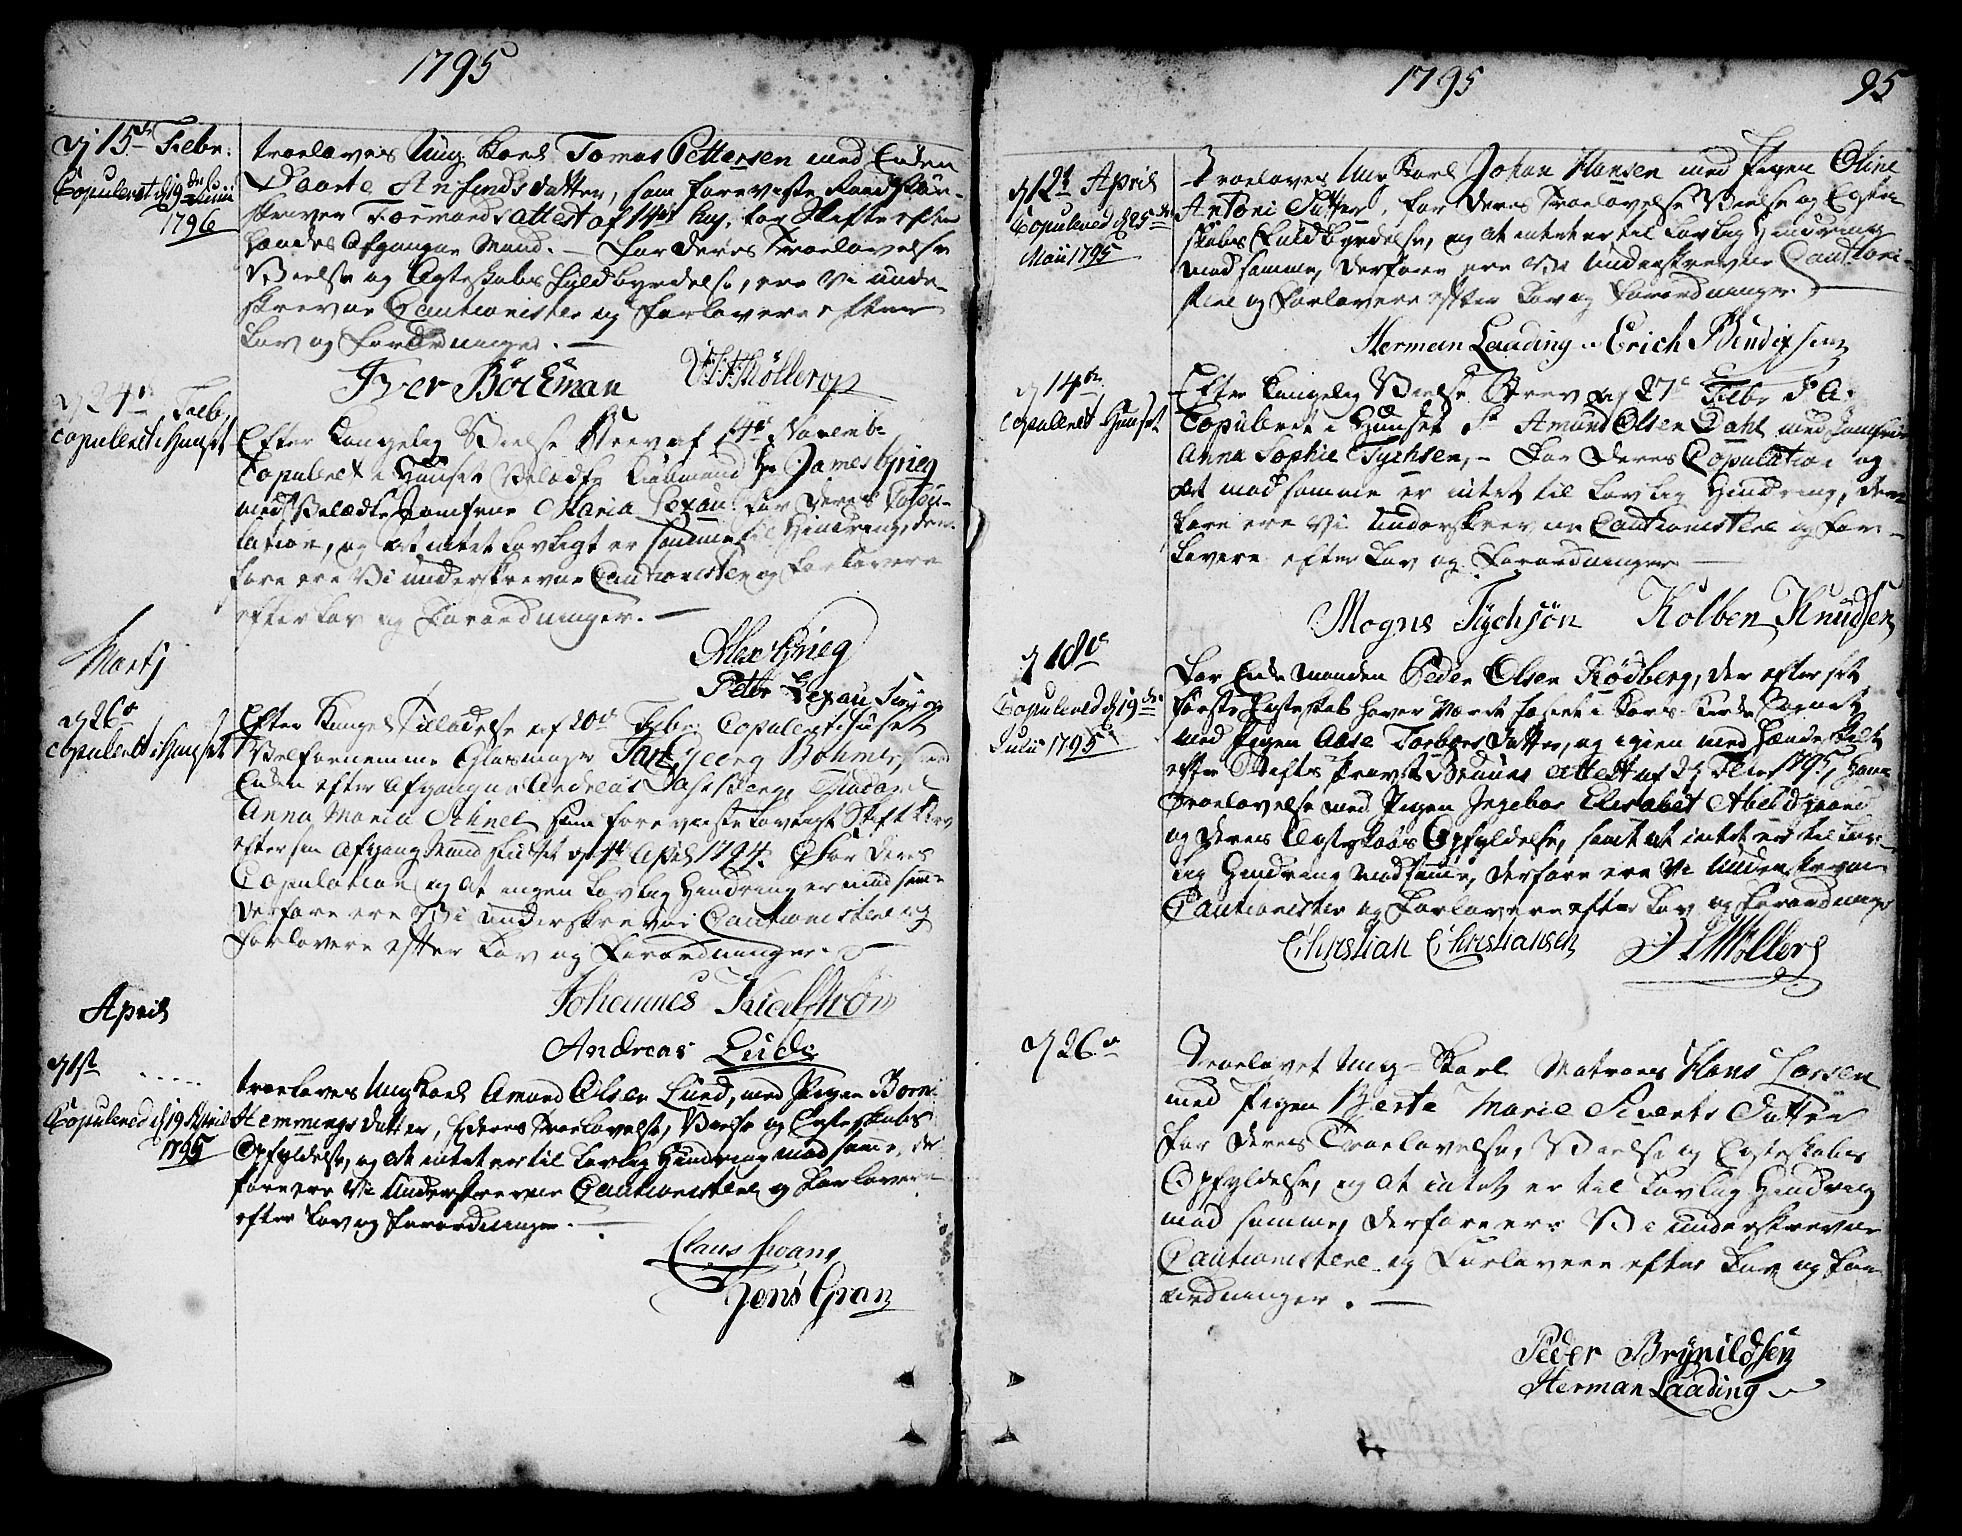 1795
dj 15de Febr.
Copuleret dj 19de Junii
1796
trolovet Ung Karl Tomas Pettersen med Enken
Daarte Ansinds datter, som foreviste
skriver Tormands attest af 14de huj. for Skifte efter
hendes Afgangne Mand. — For Deres Troelovelse
Vielse og Egteskabs Fuldbyrdelse, ere Vi unde-
skrevne Cautionister og Forlovere efter
Lov og Forordninger. —
Iver Böckman
dj 24de Febr.
Copuleret i Huuset
Efter Kongelig Vielse Brev af 14de Novemb.
Copuleret i Huuset Velædle Kiøbmand Hr. James Grieg
med Velædle Jomfrue Maria Lexau. For Deres Copu-
lation, og at intet Lovligt er samme til Hindring, der-
fore ere Vi underskrevne Cautionister og Forlovere
efter Lov og Forordninger. —
Alex Grieg
Peter Lexau
Martj
dj 26de
Copuleret i Huuset
Efter Konge Tilladelse af 20de Febr. Copuleret i Huuset
Velfornemme Glasmager Georg Böhme, med
Enken efter afgangne Andreas Madame
Anna Maria hun foreviste Lovligt Skift Brev
efter sin Afgang Mand sluttet 4de April 1794. For Deres
Copulation og at ingen Lovlig Hindring er mod samme
Derfore ere Vi underskrevne Cautionistere og
Forlovere efter Lov og Forordninger. —
Johannes
Andreas Lude
April
dj 1ste
Copulered dj 19 April
1795
trolovet Ung Karl Amund Olsen Lund, med Pigen
Hemmings datter, Deres Troelovelse, Vielse og Egteskabs
Opfyldelse, og at intet er til Lovlig Hindring mod samme, der-
fore ere Vi underskrevne Cautionistere og Forlovere
efter Lov og Forordninger. —
Claus Svane
Jens Gran
1795
95
April
Copulered dj 25de
Maii 1795
Troelovet Ung Karl Johan Hansen med Pigen Oline
Antoni Datter, for Deres Troelovelse Vielse og Egte-
skabs Fuldbyrdelse, og at intet er til Lovlig Hindring
mod samme, Derfore ere Vi Underskrevne Cautioni-
stere og Forlovere efter Lov og Forordninger.
Herman Laading. Erich Bendixsen
dj 14de
Copuleret i Huuset
Efter Kongelig Vielse Brev af 27de Febr. d. A.
Copuleret i Huuset Sr. Amund Olsen Dahl med Jomfrue
Anna Sophie Tychsen, — For Deres Copulation og
at mod samme er intet til Lovlig Hindring, der-
fore ere Vi Underskrevne Cautionistere og For-
lovere efter Lov og Forordninger —
Mogns Tÿchsön Kolben Knudsen
dj 18de
Copulered dj 19de
Julii 1795
For Enke manden Peder Olsen Rödberg, der efter sit
første Egteskab haver været
med Pigen Aase Torbers Datter, og igien med
efter Stifts Provst Bruuns attest af 1795, hans
Troelovelse med Pigen Ingebor Elisabet Abel
og Deres Egteskabs Opfyldelse, samt at intet er til Lov-
lig Hindring mod samme, Derfore ere Vi Underskrevne
Cautionister og Forlovere efter Lov og Forordninger
Christian Christiansen
dj 26de
Troelovet Ung-Karl Matroes Hans Larsen
med Pigen Berte Marie Siverts Datter
for Deres Troelovelse, Vielse og Egteskabs
Opfyldelse, og at intet er til Lovlig Hindring
mod samme, Derfore ere Vi underskrevne
Cautionistere og Forlovere efter Lov og For-
ordninger. —
Peder Brÿnildsen
Herman Laading